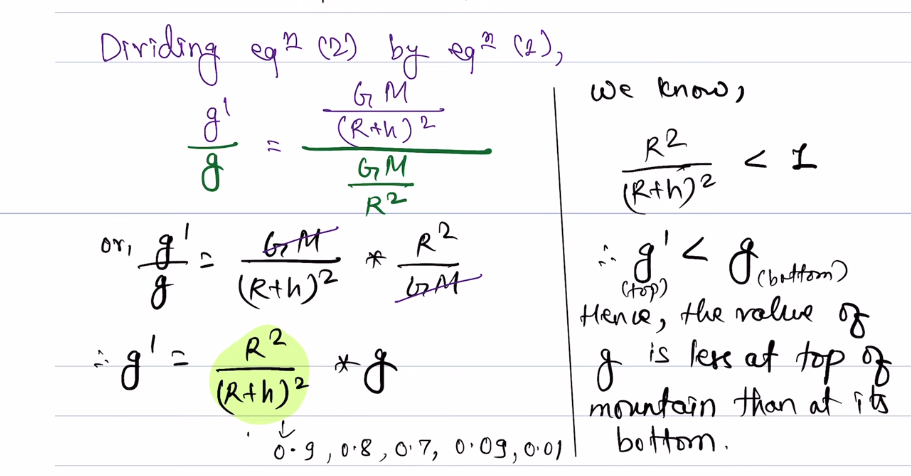 Dividing eqⁿ (2) by eqⁿ (1),
g'/g = (GM/(R+h)²)/(GM/R²)
or, g'/g = GM/(R+h)² * R²/GM
∴ g' = R²/(R+h)² * g
↓
0.9, 0.8, 0.7, 0.09, 0.01
we know,
R²/(R+h)² < 1
∴ g'(top) < g(bottom)
Hence, the value of
g is less at top of
mountain than at its
bottom.